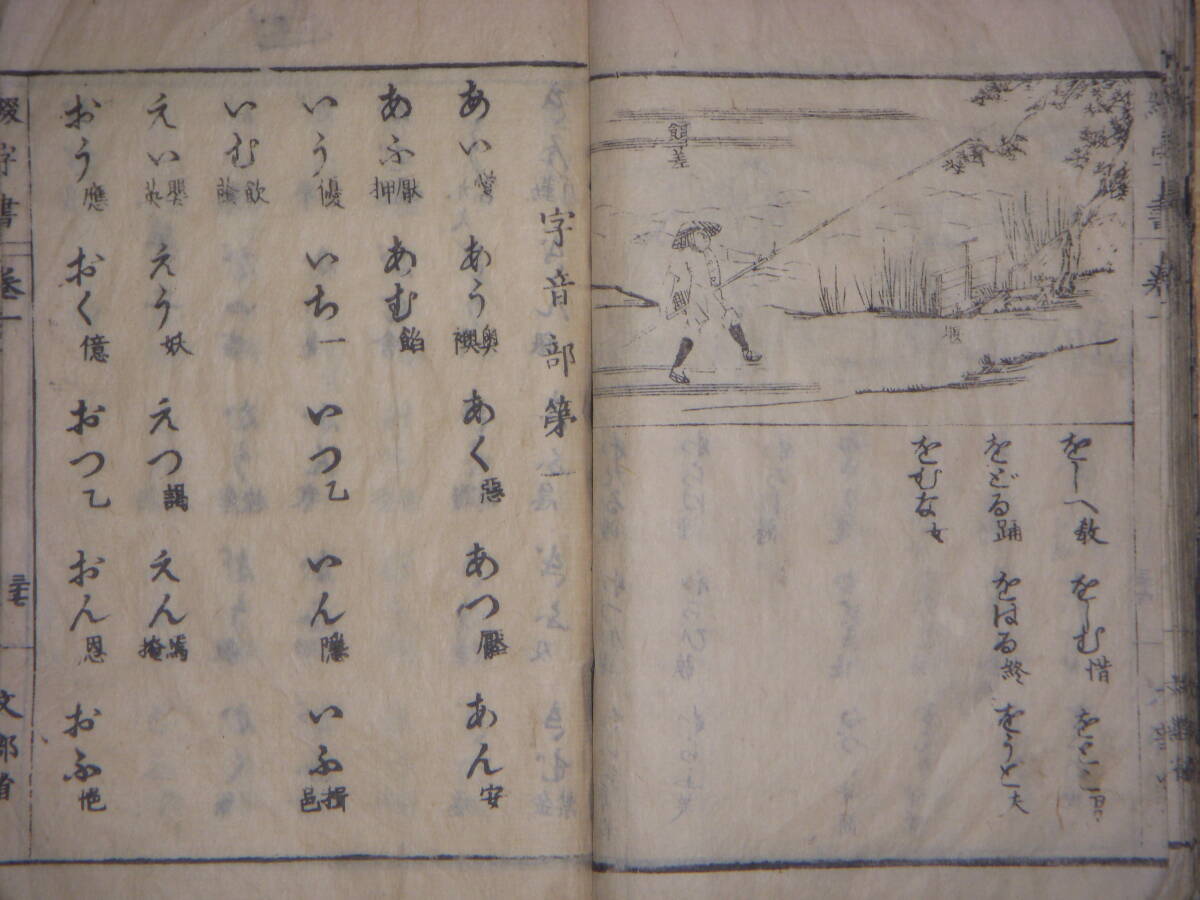 餌差
堰
をしへ教 をしむ惜
をどる踊 をはる終 をうと夫
をむな女
字音部第一
あい あう奥襖 あく惡 あつ あん安
あふ押 あむ餡
いう優 いち一 いつ乙 いん隱 いふ揖邑
いむ飲
えい えう妖 えつ謁 えん焉掩
おう應 おく億 おつ乙 おん恩 おふ
綴字書 巻一
文部省